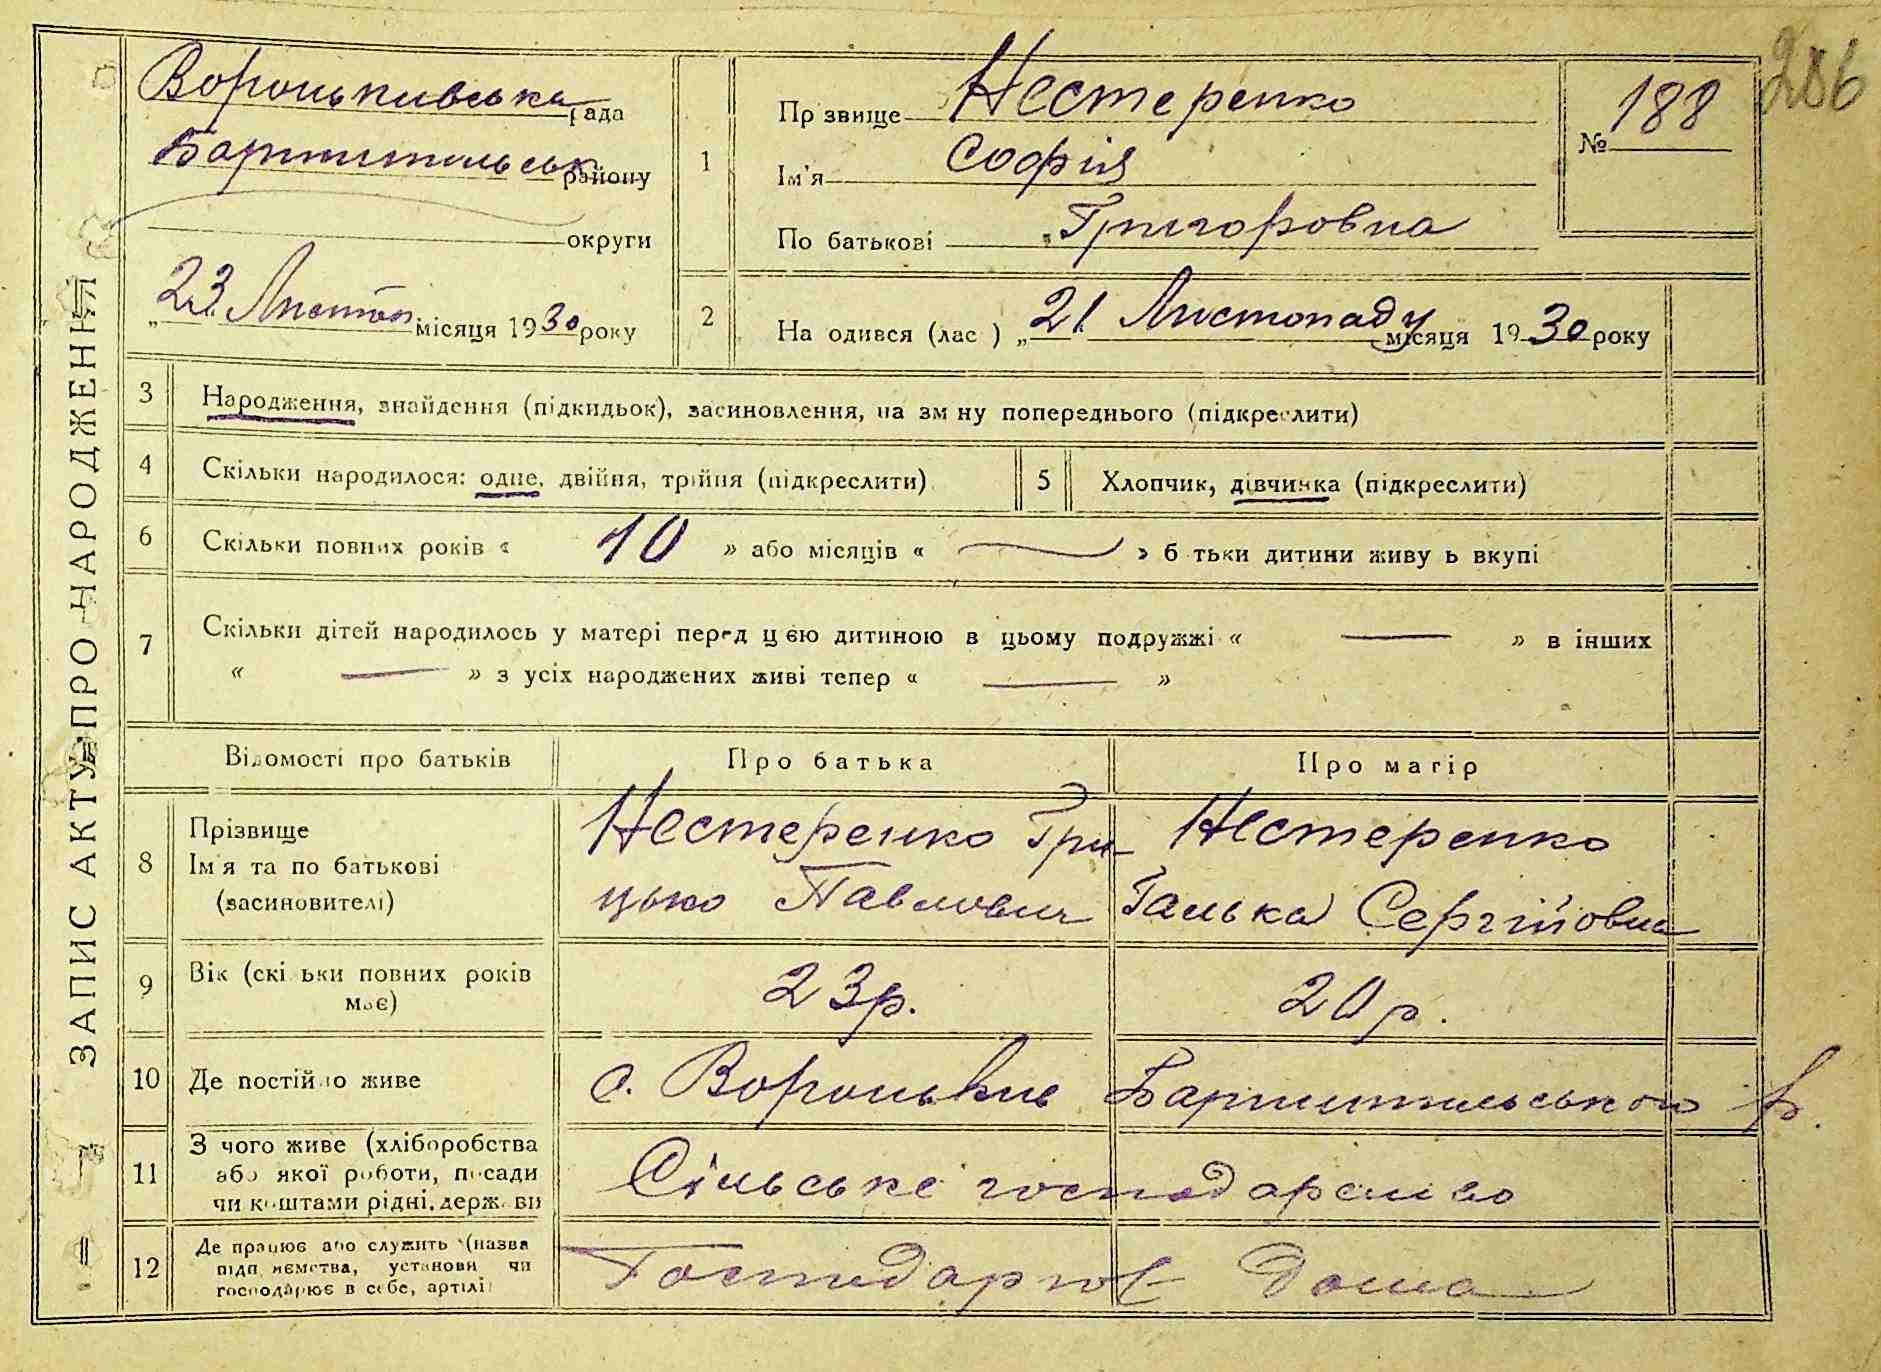 286
ЗАПИС АКТУ ПРО НАРОДЖЕННЯ
Вороньківська рада
Баришпільськ району
округи
„23 Листоп. місяця 1930 року
1
Пр звище Нестеренко
Ім'я Софія
По батькові Григоровна
№ 188
2
На одився (лас ) „21 Листопаду місяця 1930 року
3 Народження, знайдення (підкидьок), засиновлення, на зм ну попереднього (підкреслити)
4 Скільки народилося: одне, двійня, трійня (підкреслити)
5 Хлопчик, дівчинка (підкреслити)
6 Скільки повних років « 10 » або місяців « — » б тьки дитини живу ь вкупі
7 Скільки дітей народилось у матері перед цією дитиною в цьому подружжі « — » в інших
« — » з усіх народжених живі тепер « — »
Відомості про батьків Про батька Про матір
8 Прізвище
Ім'я та по батькові
(засиновителі)
Нестеренко Гри-
цько Павлович
Нестеренко
Галька Сергійовна
9 Вік (скі ьки повних років
має)
23р.
20р.
10 Де постійно живе с. Вороньків Баришпільського р.
11 З чого живе (хліборобства
або якої роботи, посади
чи коштами рідні, держави
Сільське господарство
12 Де працює або служить (назва
підп иємства, установи чи
господарює в себе, артілі
Господарює Дома